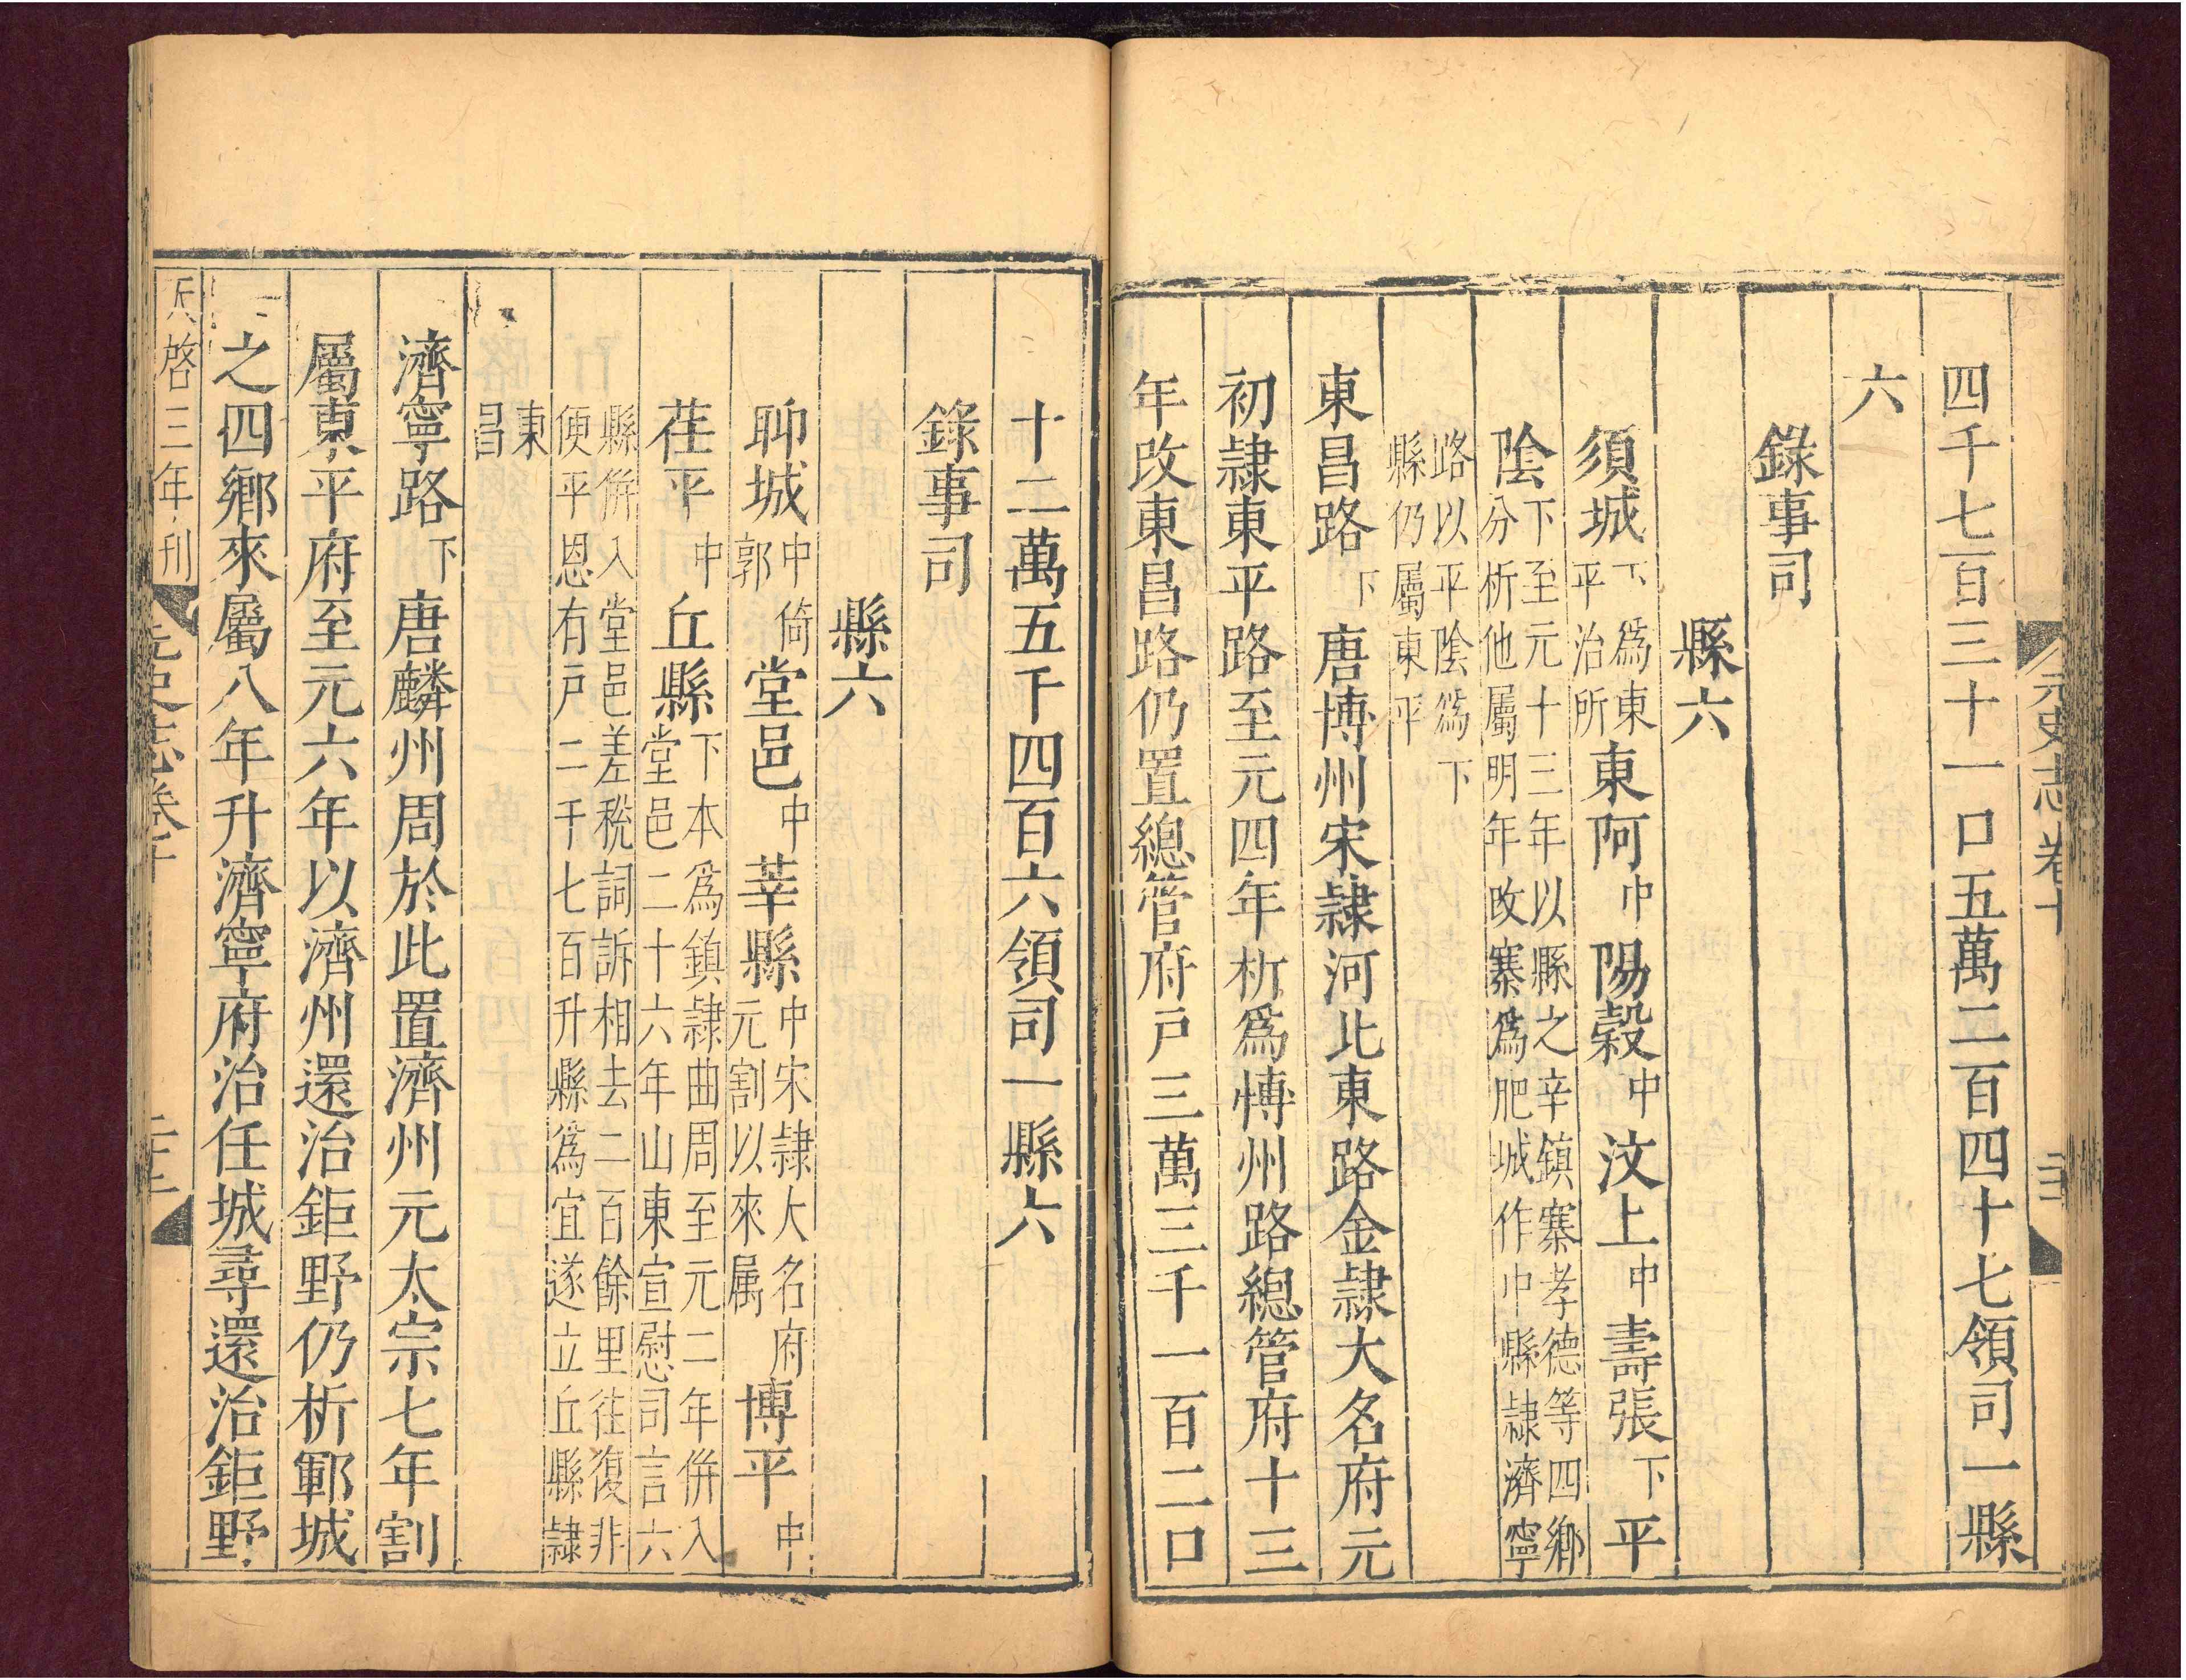 元史志卷十
四千七百三十一口五萬二百四十七領司一縣
六
錄事司
縣六
須城下為東平治所東阿中陽穀中汶上中壽張下平
陰下至元十三年以縣之辛鎮寨孝德等四鄉
分析他屬明年改寨為肥城作中縣隷濟寧
路以平陰為下
縣仍屬東平
東昌路下唐博州宋隷河北東路金隷大名府元
初隷東平路至元四年析為博州路總管府十三
年改東昌路仍置總管府戶三萬三千一百二口
十二萬五千四百六領司一縣六
錄事司
縣六
聊城中倚郭堂邑中莘縣中宋隷大名府元割以來属博平中
茌平中丘縣下本為鎮隷曲周至元二年併入堂邑二十六年山東宣慰司言六
縣併入堂邑差稅詞訴相去二百餘里往復非
便平恩有戶二千七百升縣為宜遂立丘縣隷
東
昌
濟寧路下唐麟州周於此置濟州元太宗七年割
屬東平府至元六年以濟州還治鉅野仍析鄆城
之四鄉來屬八年升濟寧府治任城尋還治鉅野
天啓三年刊
元史志卷十